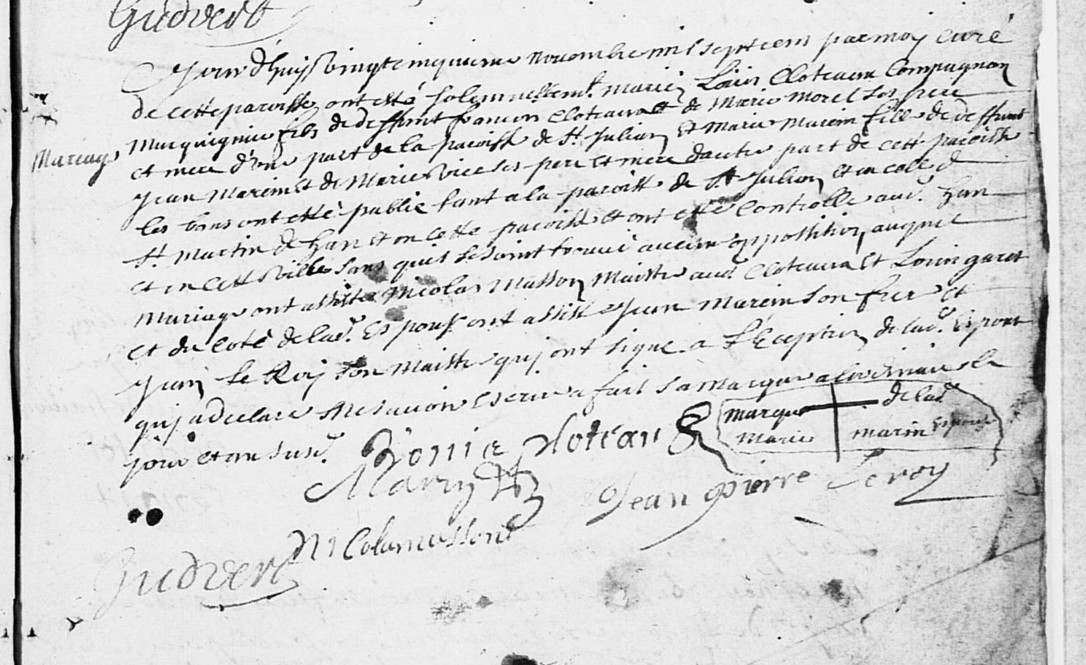 Gudvert
Jourd'huy vingtcinquieme novembre mil sept cens par moy curé
de cette paroisse ont esté solemnellemt. mariez Louis Cloteaux Compagnon
Mariage
fils de deffunt francois Cloteaux et de Marie Morel ses pere
et mere d'une part de la paroisse de St. Julien et Marie Marein fille de deffunt
Jean Marein et de Marie ses pere et mere dautre part de cette paroisse
les bans ont esté publie tant a la paroisse de St Julien et en celle de
St. Martin de han et en cette paroisse et ont esté Controlle aud. han
et en cette ville sans quil se soint trouvé aucun oppossition auquel
Mariage ont assisté Nicolas Masson Maistre aud. Cloteaux et Louis
et du coté de lad. Espouse ont assisté Jean Marein son frere et
Jean le Roy son Maistre quj ont signé a l'Exception de lad. Espouse
quj a declaré ne scavoir escrire a fait sa marque
jour et an susd.
Cloteau
marque de lad
marie marin Espouse
Jean pierre Leroy
Nicola masson
Gudvert